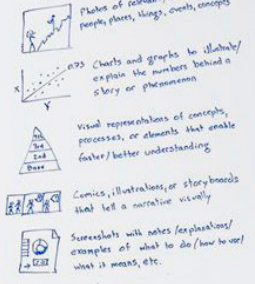 Photos of relevant
people, places, things, events, concepts
0.93
X
Y
Charts and graphs to illustrate/
explain the numbers behind a
story or phenomenon
3rd
2nd
Base
Visual representations of concepts,
processes, or elements that enable
faster/better understanding
Comics, illustrations, or storyboards
that tell a narrative visually
Screenshots with notes/explanations/
examples of what to do/how to use/
what it means, etc.